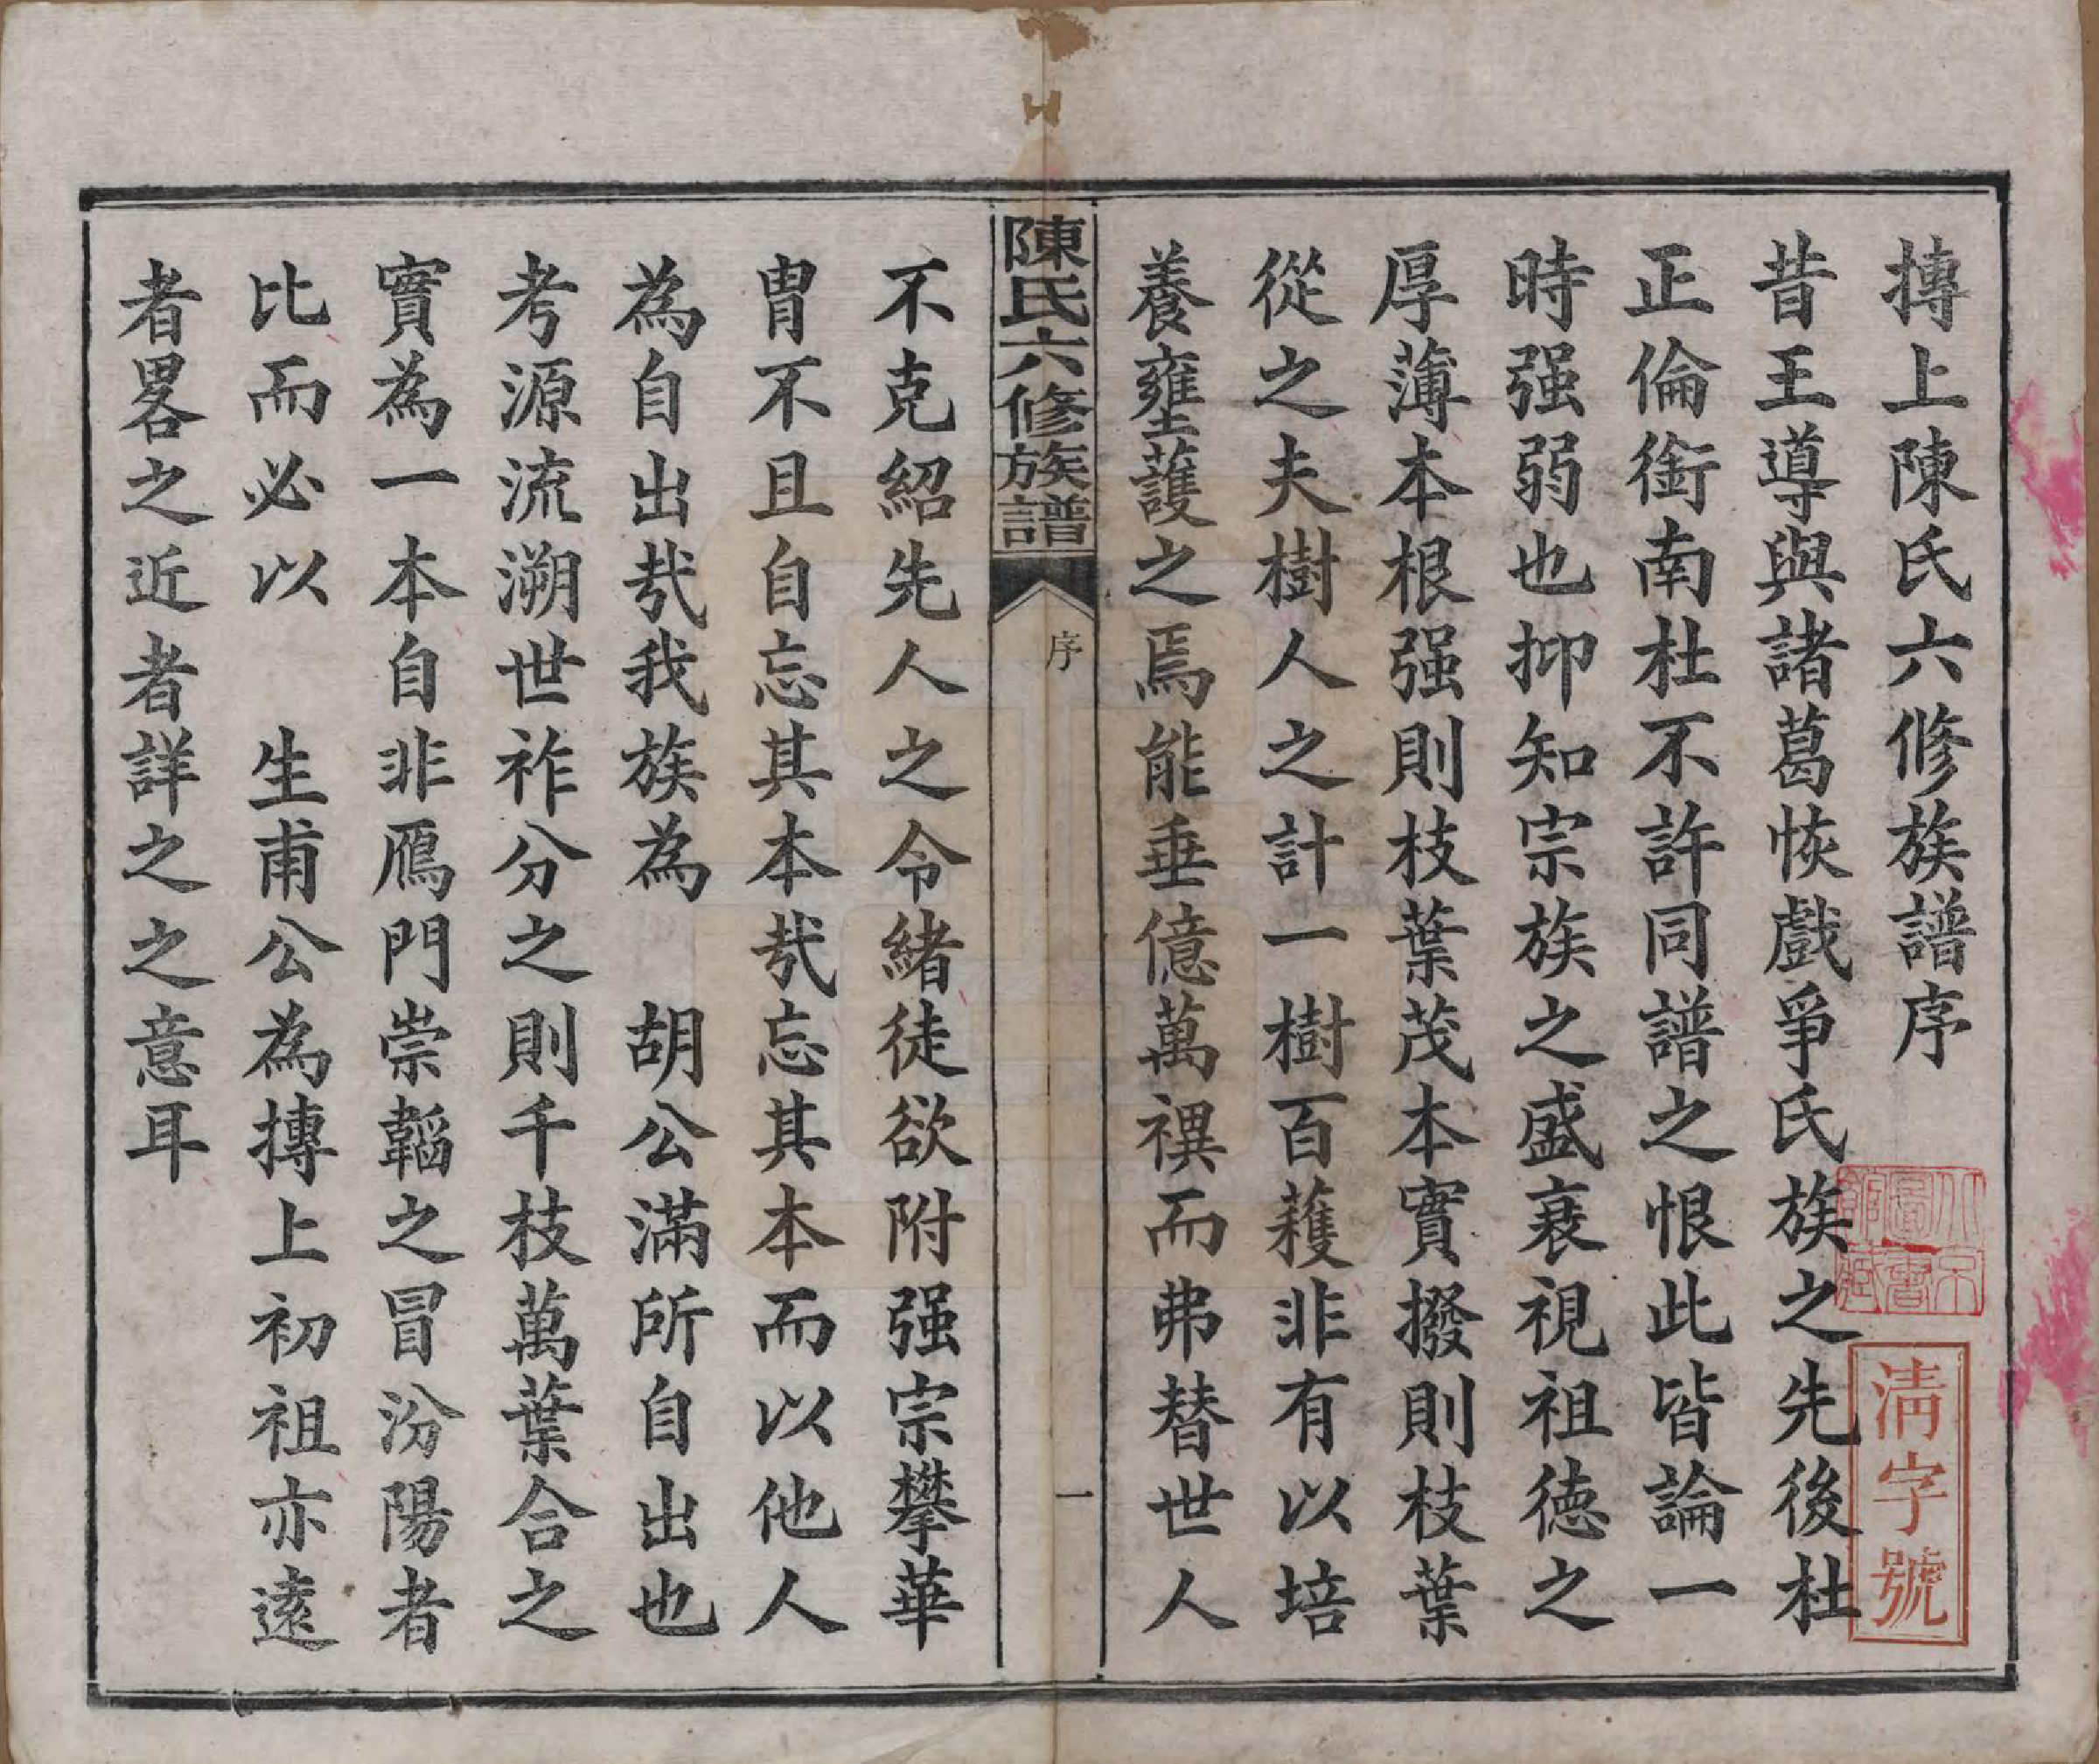 摶上陳氏六修族譜序
昔王導與諸葛恢戲爭氏族之先後杜
正倫銜南杜不許同譜之恨此皆論一
時强弱也抑知宗族之盛衰視祖德之
厚薄本根强則枝葉茂本實撥則枝葉
從之夫樹人之計一樹百穫非有以培
養壅護之焉能垂億萬禩而弗替世人
陳氏六修族譜
序
一
不克紹先人之令緒徒欲附强宗攀華
胄不且自忘其本哉忘其本而以他人
為自出哉我族為　胡公滿所自出也
考源流溯世祚分之則千枝萬葉合之
實為一本自非鴈門崇韜之冒汾陽者
比而必以　生甫公為摶上初祖亦遠
者畧之近者詳之之意耳
清字號